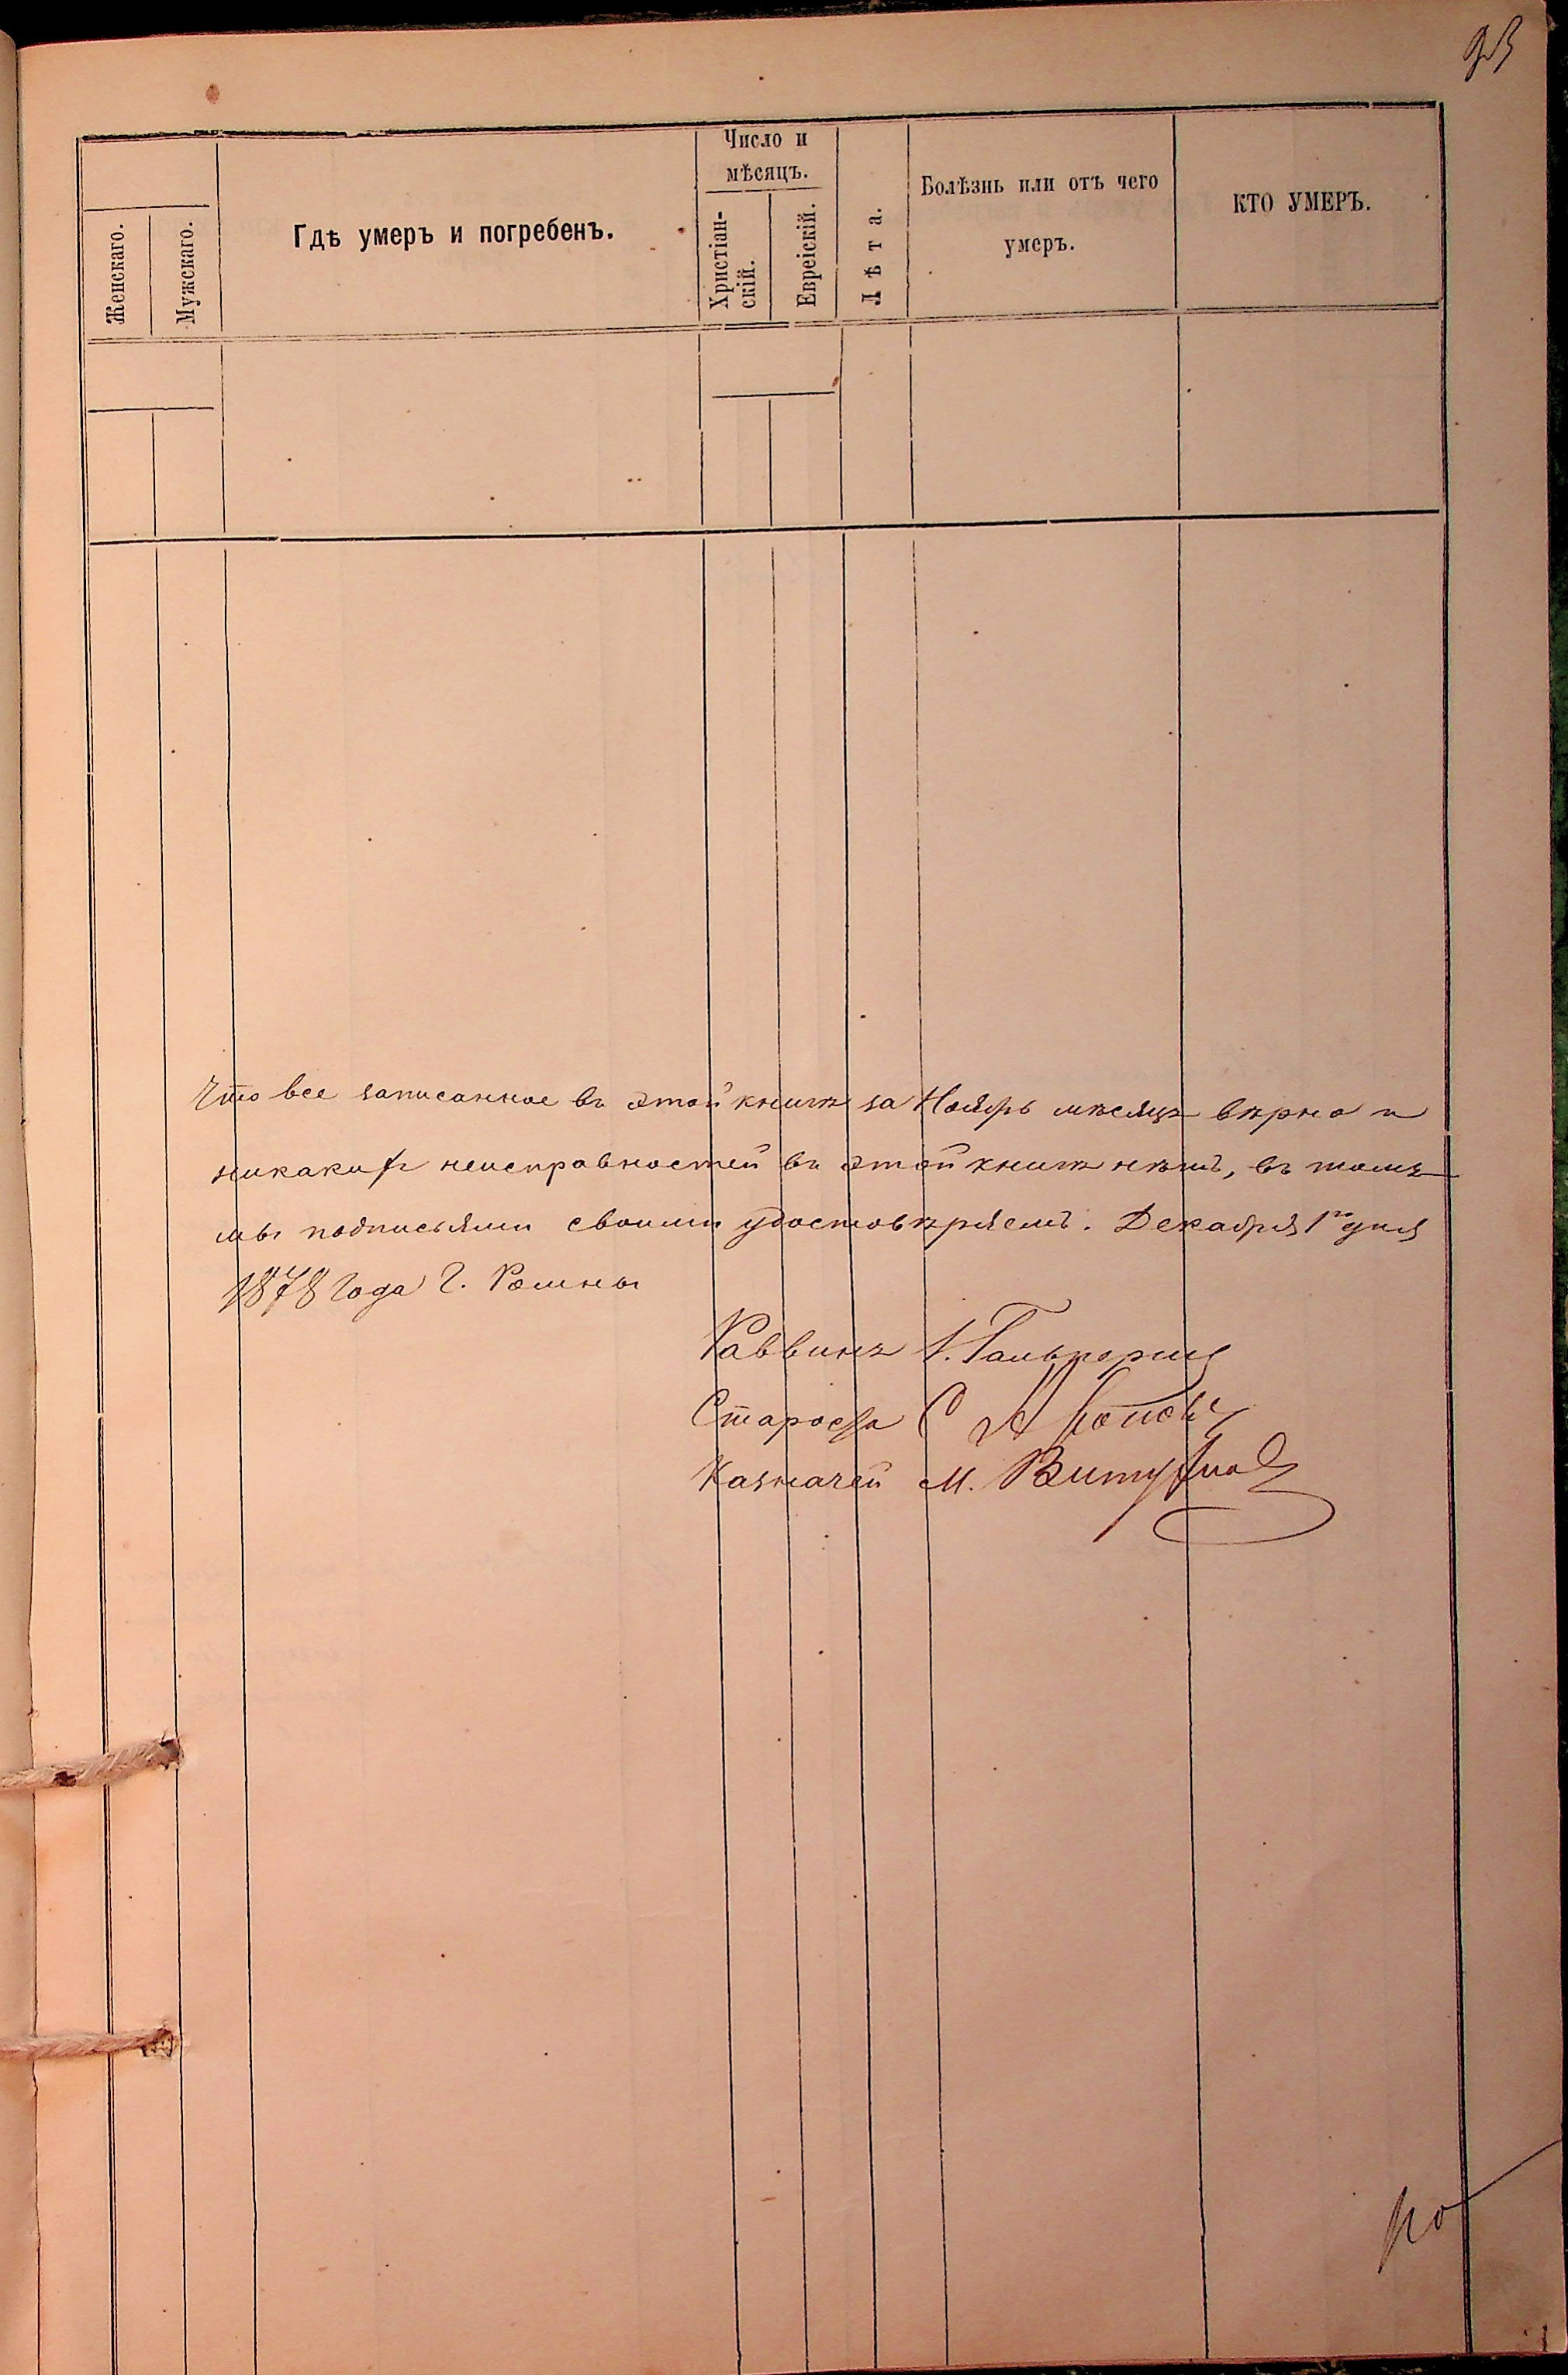 93
Женскаго.
Мужскаго.
Гдѣ умеръ и погребенъ.
Число и
мѣсяцъ.
Христіан-
скій.
Евреіскій.
Лѣта.
Болѣзнь или отъ чего
умеръ.
КТО УМЕРЪ.
Что все записанное въ этой книгѣ за Ноябрь мѣсяцъ вѣрно и
никакихъ неисправностей въ этой книгѣ нѣтъ, въ томъ
мы подписями своими удостовѣряемъ. Декабря 1го дня
1878 Года Г. Ромны
Раввинъ Гальперинъ
Староста С
Казначей М.
по